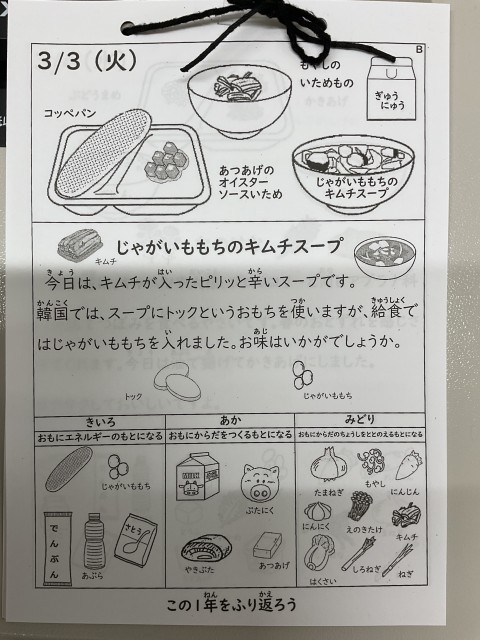 B
3/3（火）
もやしの
いためもの
ぎゅう
にゅう
コッペパン
あつあげの
オイスター
ソースいため
じゃがいももちの
キムチスープ
キムチ
じゃがいももちのキムチスープ
きょう はい から
今日は、キムチが入ったピリッと辛いスープです。
かんこく つか きゅうしょく
韓国では、スープにトックというおもちを使いますが、給食で
い あじ
はじゃがいももちを入れました。お味はいかがでしょうか。
トック
じゃがいももち
きいろ
おもにエネルギーのもとになる
じゃがいももち
でんぷん
あぶら
さとう
あか
おもにからだをつくるもとになる
MILK
ぶたにく
やきぶた
あつあげ
みどり
おもにからだのちょうしをととのえるもとになる
たまねぎ
もやし
にんじん
にんにく
えのきたけ
キムチ
はくさい
しろねぎ
ねぎ
ねん かえ
この1年をふり返ろう